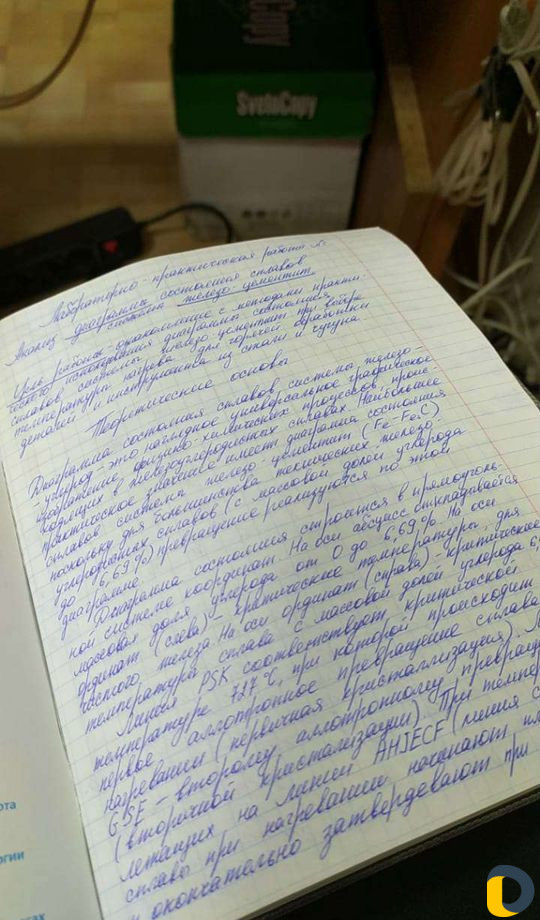 SvetoCopy
Лабораторно-практическая работа №
Анализ диаграммы состояния сплавов
системы железо-цементит
Цель работы - ознакомление с методами практи-
ческого использования диаграммы состояния
сплавов системы железо-цементит при выборе
температуры нагрева для горячей обработки
деталей и инструмента из стали и чугуна
Теоретические основы
Диаграмма состояния сплавов системы железо-
-углерод - это наглядное универсальное графическое
изображение физико-химических процессов, проис-
ходящих в железоуглеродистых сплавах. Наибольшее
практическое значение имеет диаграмма состояния
сплавов система железо-цементит (Fe-Fe₃C)
поскольку для большинства технических железо-
углеродистых сплавов (с массовой долей углерода
до 6,69%) превращение реализуются по этой
диаграмме.
Диаграмма состояния строится в прямоуголь-
ной системе координат. На оси абсцисс откладывается
массовая доля углерода от 0 до 6,69%. На оси
ординат (слева) - критические температуры, для
чистого железа. На оси ординат (справа) - критические
температуры сплава с массовой долей углерода 6,
Линия PSK соответствует критической
температуре 727°C, при которой происходит
первое аллотропное превращение сплава
нагревании (первичная кристаллизация).
GSE - второму аллотропному превращ
(вторичной кристализации). При темпер
летащих на линии AHJECF (линия с
сплавы при нагревании начинают пл
и окончательно затвердевают при
ота
огии
тах